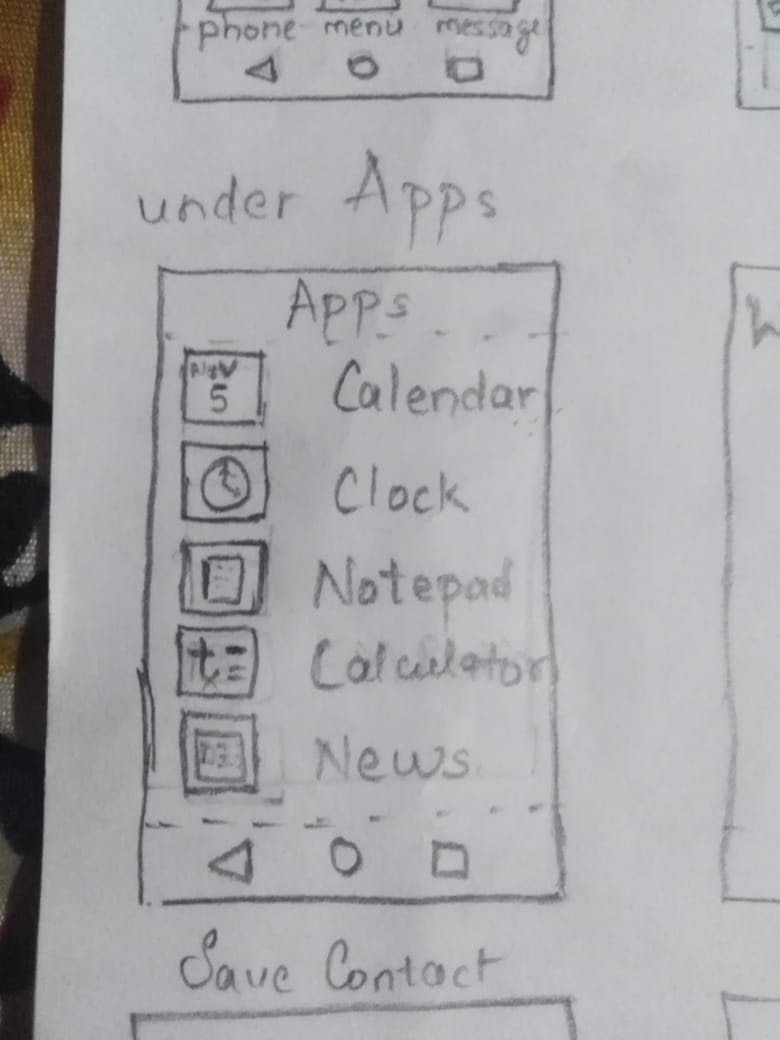 phone menu message
under Apps
Apps
Nov
5
Calendar
Clock
Notepad
Calculator
News
Save Contact